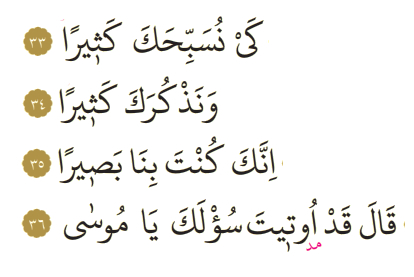 كَىْ نُسَبِّحَكَ كَثٖيرًا ﴿٣٣﴾
وَنَذْكُرَكَ كَثٖيرًا ﴿٣٤﴾
اِنَّكَ كُنْتَ بِنَا بَصٖيرًا ﴿٣٥﴾
قَالَ قَدْ اُوتٖيتَ سُؤْلَكَ يَا مُوسٰى ﴿٣٦﴾
مد